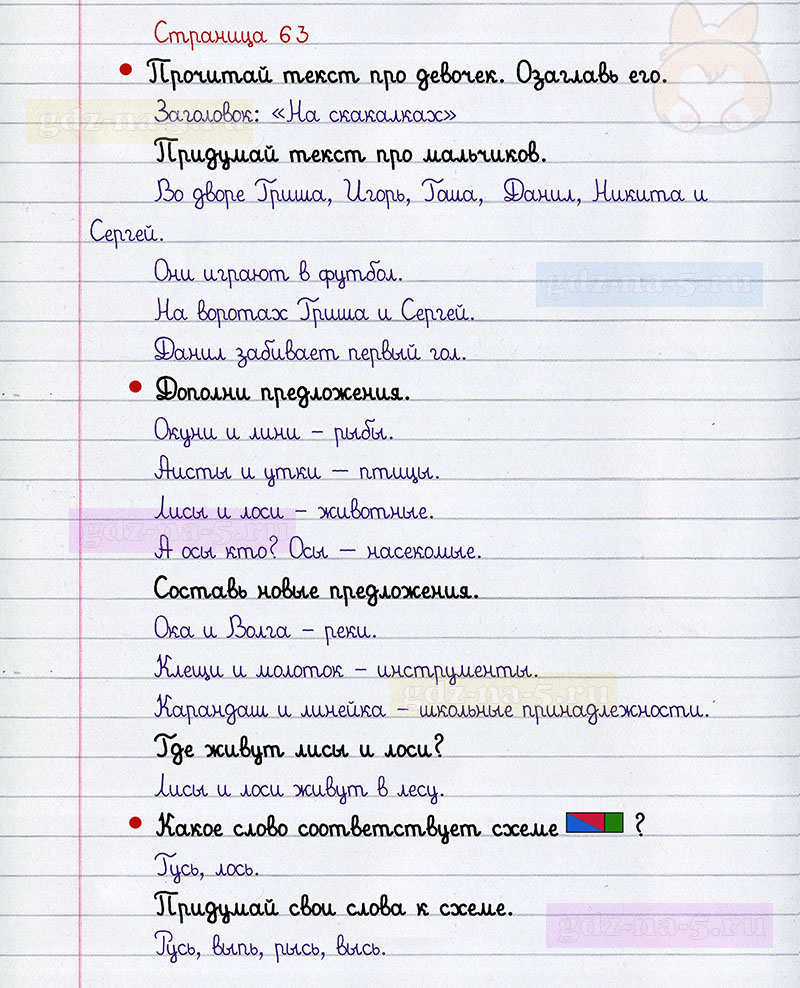 Страница 63
Прочитай текст про девочек. Озаглавь его.
Заголовок: «На скакалках»
gdz-na-5.ru
Придумай текст про мальчиков.
Во дворе Гриша, Игорь, Гоша, Данил, Никита и
Сергей.
Они играют в футбол.
gdz-na-5.ru
На воротах Гриша и Сергей.
Данил забивает первый гол.
Дополни предложения.
Окуни и лини – рыбы.
Аисты и утки — птицы.
Лисы и лоси – животные.
gdz-na-5.ru
А осы кто? Осы — насекомые.
Составь новые предложения.
Ока и Волга – реки.
Клещи и молоток – инструменты.
gdz-na-5.ru
Карандаш и линейка – школьные принадлежности.
Где живут лисы и лоси?
Лисы и лоси живут в лесу.
Какое слово соответствует схеме ?
Гусь, лось.
Придумай свои слова к схеме.
gdz-na-5.ru
Русь, выпь, рысь, высь.